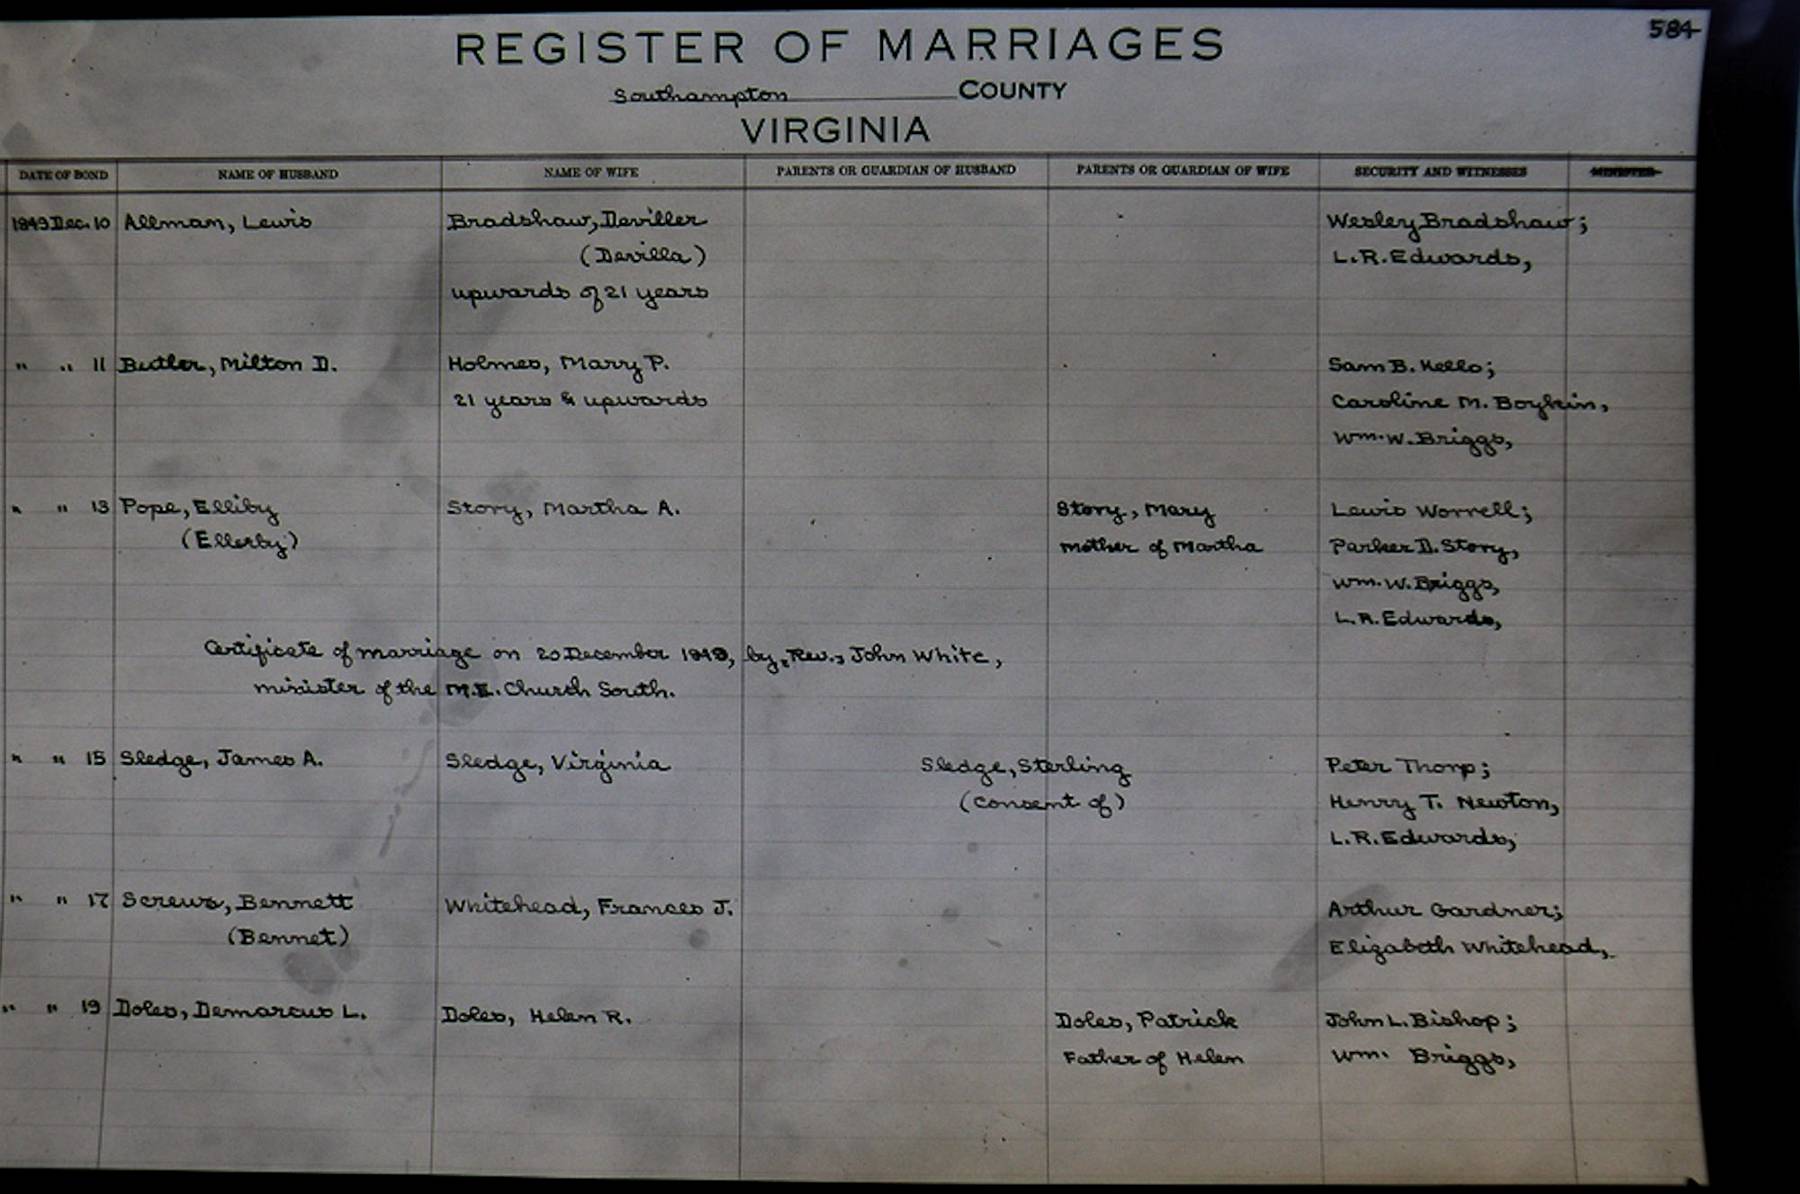 584
REGISTER OF MARRIAGES
Southampton COUNTY
VIRGINIA
DATE OF BOND NAME OF HUSBAND NAME OF WIFE PARENTS OR GUARDIAN OF HUSBAND PARENTS OR GUARDIAN OF WIFE SECURITY AND WITNESSES MINISTER
1849 Dec. 10 Allman, Lewis Bradshaw, Deviller Wesley Bradshaw;
(Devilla) L.R. Edwards,
upwards of 21 years
" " 11 Butler, Milton D. Holmes, Mary P. Sam B. Kello;
21 years & upwards Caroline M. Boykin,
Wm. W. Briggs,
" " 13 Pope, Elliby Story, Martha A. Story, Mary Lewis Worrell;
(Ellerby) mother of Martha Parker D. Story,
Wm. W. Briggs,
L.R. Edwards,
Certificate of marriage on 20 December 1849, by, Rev., John White,
minister of the M.E. Church South.
" " 15 Sledge, James A. Sledge, Virginia Sledge, Sterling Peter Thorp;
(consent of) Henry T. Newton,
L.R. Edwards,
" " 17 Screws, Bennett Whitehead, Frances J. Arthur Gardner;
(Bennet) Elizabeth Whitehead,
" " 19 Doles, Demarcus L. Doles, Helen R. Doles, Patrick John L. Bishop;
Father of Helen Wm. Briggs,